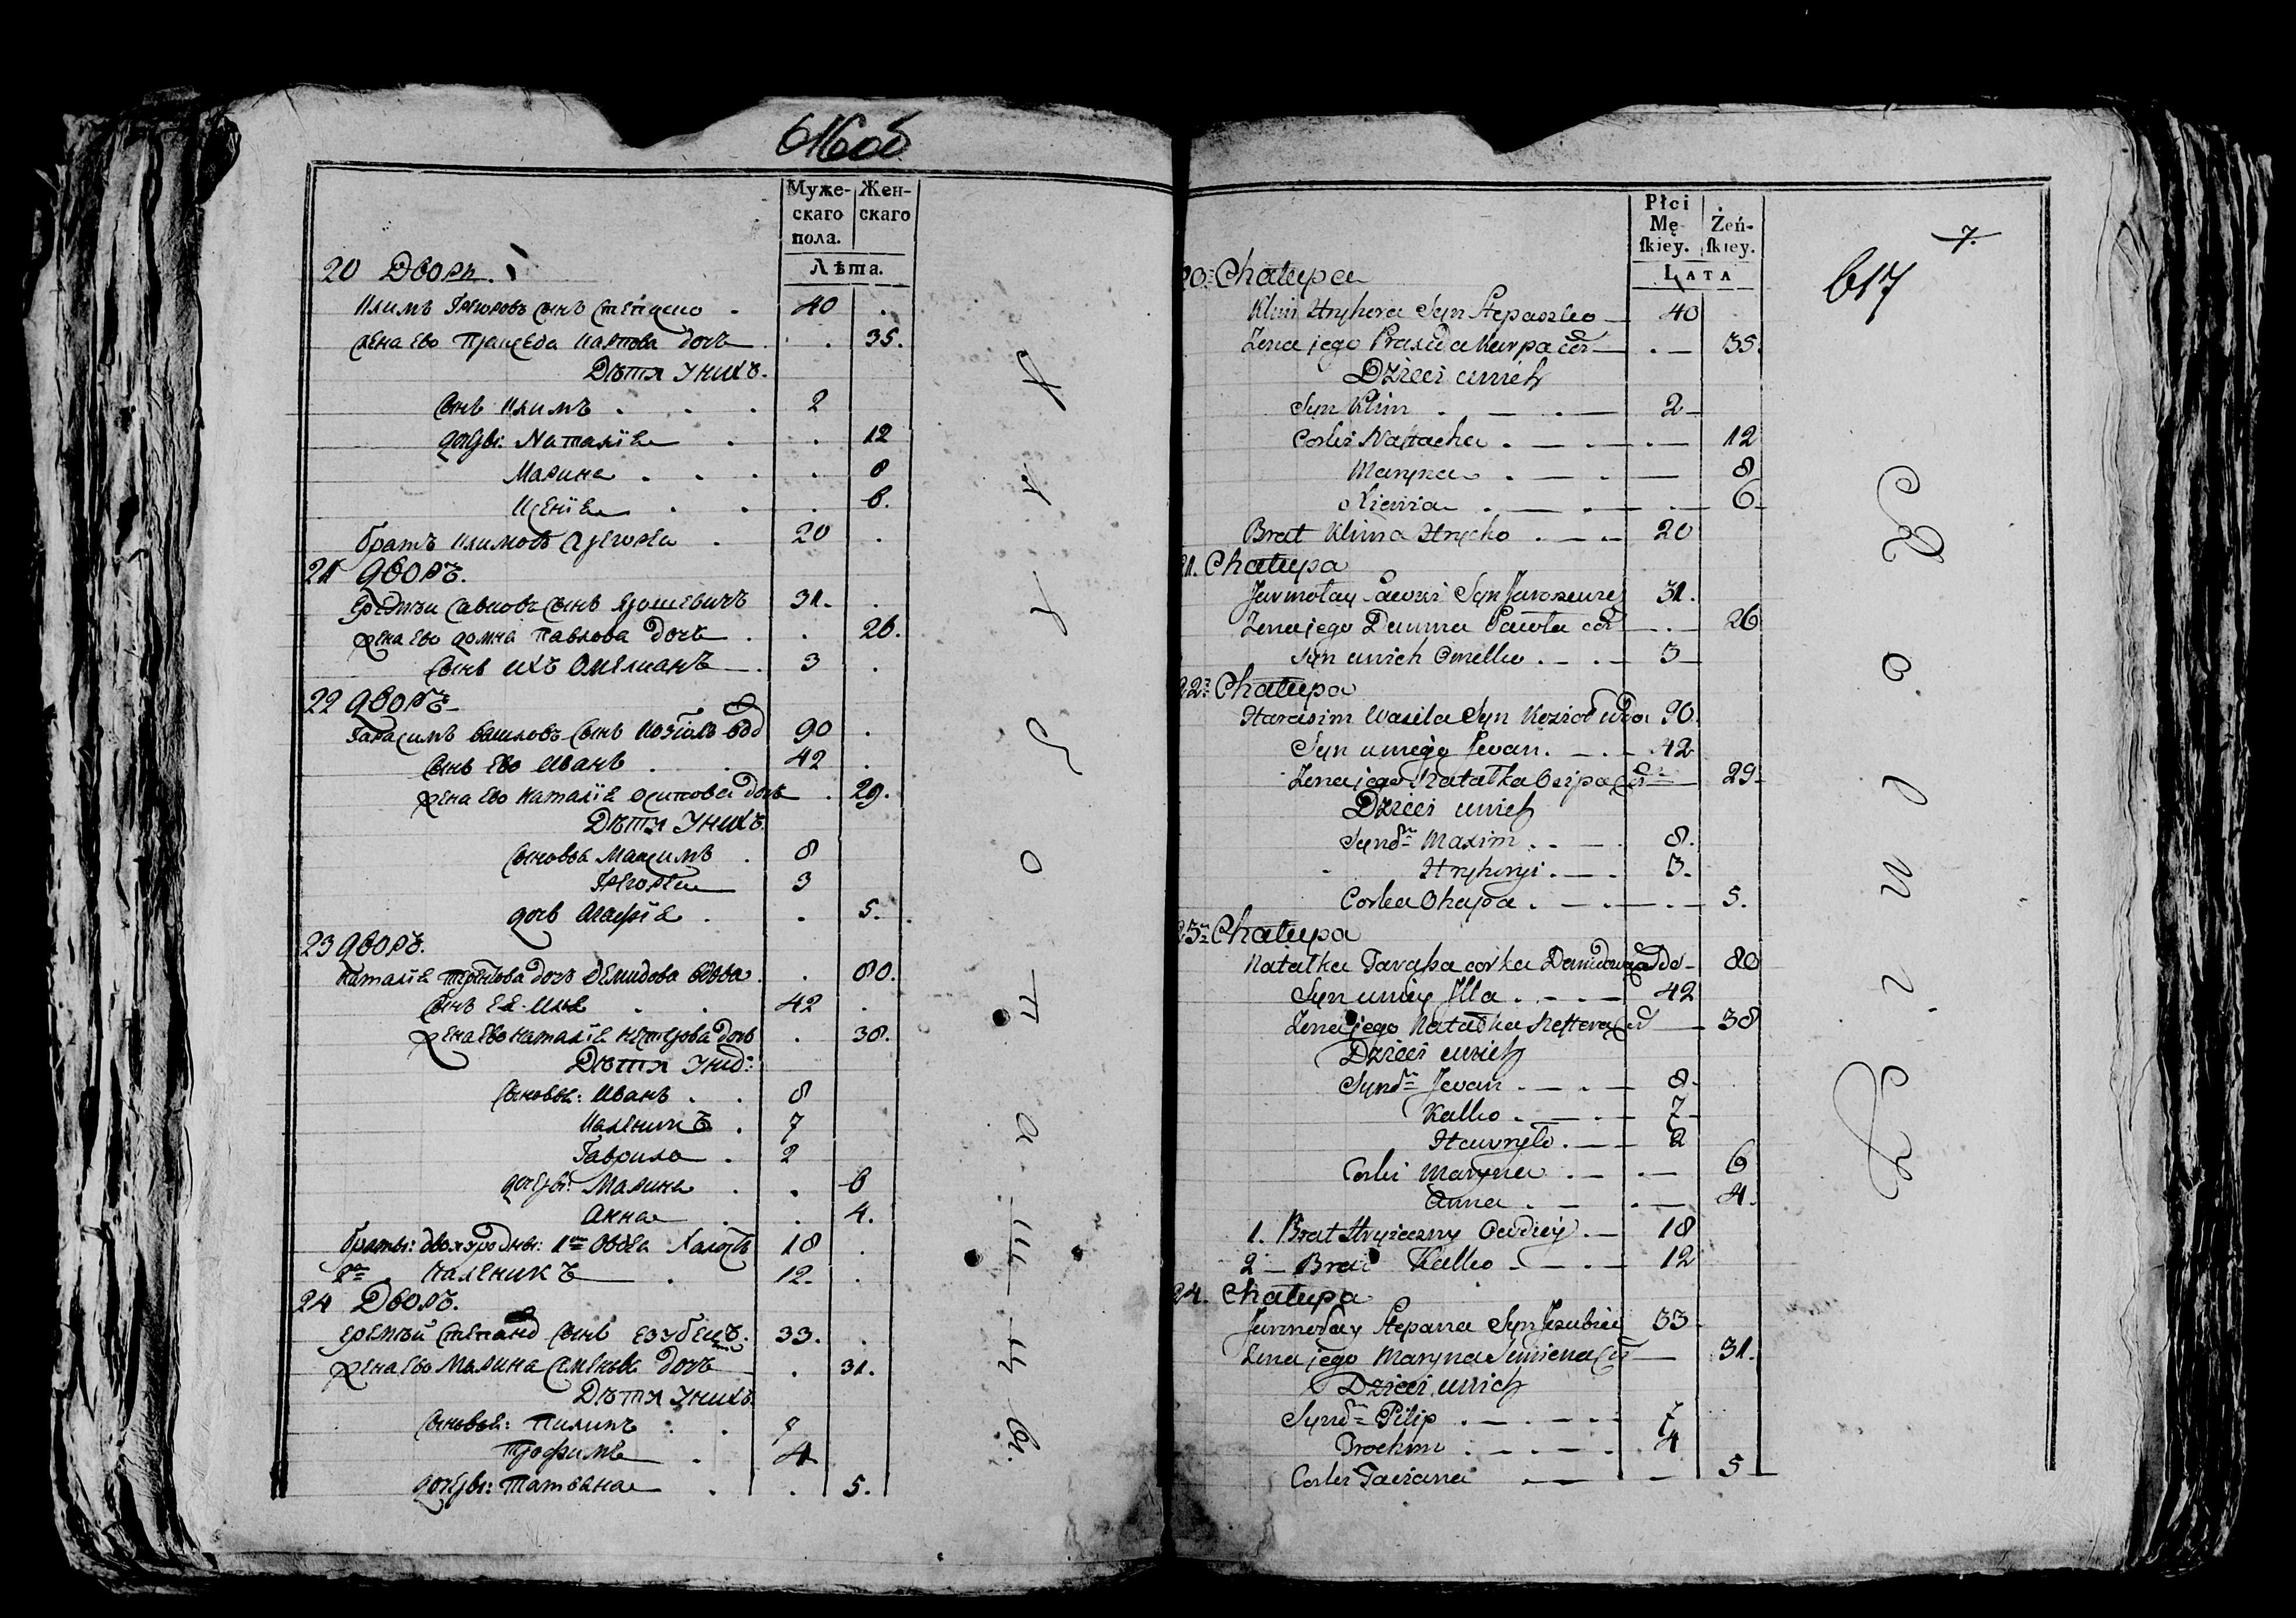 616об
Муже-скаго пола. Жен-скаго
Лѣта.
20 Дворъ.
Климъ Григоровъ сынъ 40
жена Ево Праѯеда Карпова дочь 35.
Дѣти Унихъ.
сынъ Климъ 2
дочери: Наталїя 12
Марина 8
Ксенїя 6.
братъ Климовъ Григорей 20
21 дворъ.
Савковъ сынъ Ярошевичъ 31.
жена Ево домна Павлова дочь 26.
сынъ ихъ Омелианъ 3
22 дворъ
Гарасимъ василовъ сынъ Козїолъ вд 90
сынъ Ево Иванъ 42
жена Ево Наталїя осипова дочь 29.
Дѣти Унихъ.
сыновья Максимъ 8
Григорей 3
дочь Агафїя 5.
23 дворъ.
Наталїя дочъ Демидова вдова 80.
сынъ Ея Илья 42
жена Ево Наталїя Нестерова дочь 38.
Дѣти Уних:
сыновья: Иванъ 8
Каленикъ 7
Гаврила 2
дочери: Марина 6
Анна 4.
братья: двоюродны: 1й 18
2й Каленикъ 12.
24 Дворъ.
Еремѣй Степанов сынъ Езубецъ. 33.
жена Ево Марина Семенова дочь 31.
Дѣти Унихъ
сыновья: Пилипъ 7
Трофимъ 4
дочери: Татьяна 5.
Płci Mę-skiey. Żeń-skiey.
LATA
7.
617
20. Chałupa
Klim Hryhora Syn Stepaszko 40
Żona jego Praxeda Karpa cór 35.
Dzieci unich
Syn Klim 2
Corki Nastacha 12
Maryna 8
Xienia 6
Brat Klima Hrycko 20
21. Chałupa
Jarmołay Sawki Syn 31.
Żona jego Dumna Pawła cór 26
Syn unich Omelko 3
22. Chałupa
Harasim Wasila Syn Kozioł wdo 90.
Syn uniego Jwan 42
Żona jego Natałka Osipa Cór 29
Dzieci unich
Synów Maxim 8.
Hryhoryi 3.
Corka Ohapa 5.
23. Chałupa
Natałka Tarasa corka Demidowa wdo 80
Syn uniey Jlla 42
Żona jego Natałka Nestera Cór 38
Dzieci unich
Synów Jwan 8.
Kalko 7
Hawryło 2
Corki Maryna 6
Anna 4.
1. Brat Stryieczny Owdiey 18
2 Brat Kalko 12
24. Chałupa
Jarmołay Stepana Syn Jezubiec 33
Żona jego Maryna Semiena Cór 31.
Dzieci unich
Synów Pilip 7
Trochim 4
Corki Taciana 5